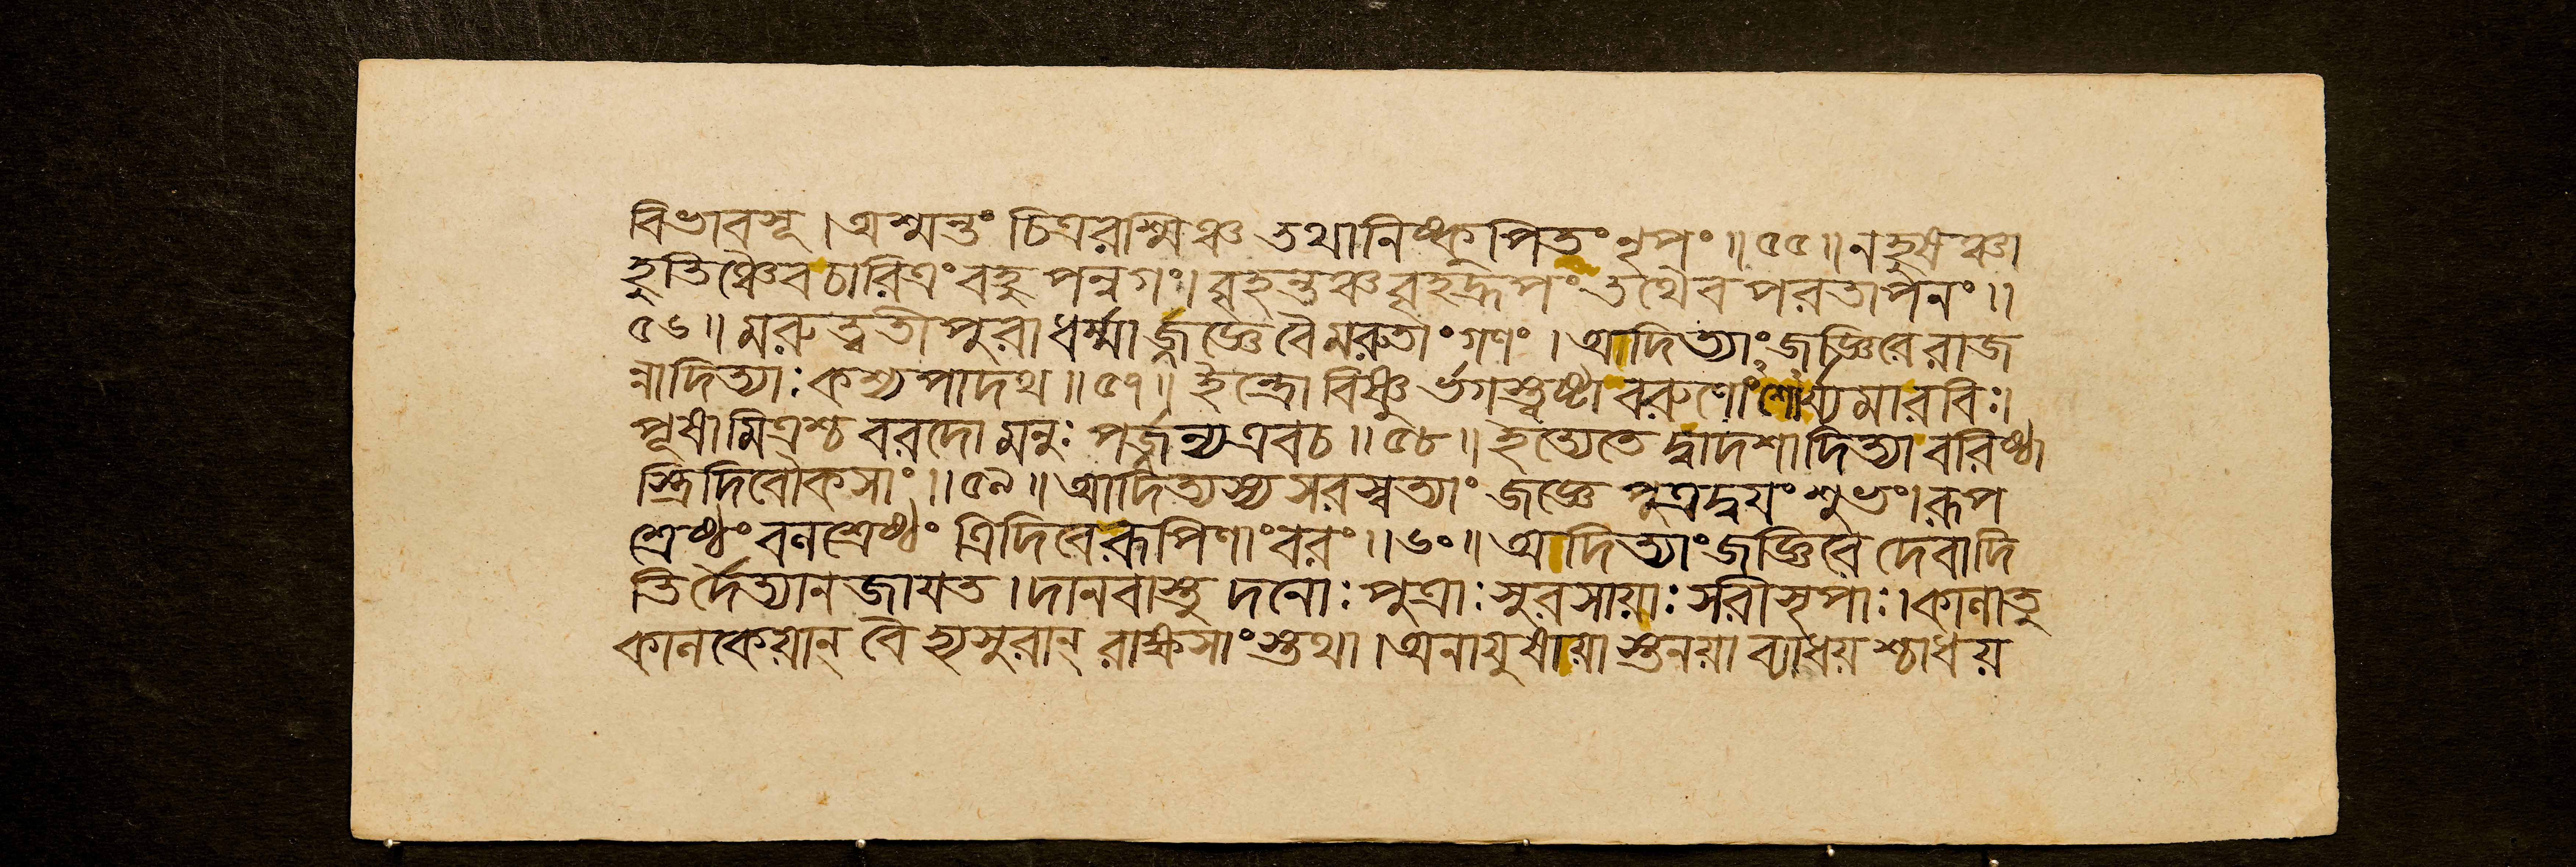 বিভাবসূ।অশ্মন্তং চিত্ররশ্মিঞ্চ তথানিষ্কুপিতুং নৃপং॥৫৫॥নহুষঞ্চা
হুতিঞ্চৈবচারিত্রং বহুপন্নগং।বৃহন্তঞ্চবৃহদ্রূপং তথৈবপরতাপনং॥
৫৬॥মরুত্ত্বতীপুরাধর্ম্মাজ্জজ্ঞেবৈমরুতাংগণং।আদিত্যাংজজ্ঞিরেরাজ
ন্নাদিত্যাঃকশ্যপাদথ॥৫৭॥ইন্দ্রোবিষ্ণুর্ভগস্ত্বষ্টাবরুণোংশোর্য্যমারবিঃ।
পূষামিত্রশ্চবরদোমনুঃপর্জ্জন্যএবচ॥৫৮॥ইত্যেতেদ্বাদশাদিত্যাবরিষ্ঠা
স্ত্রিদিবৌকসাং॥৫৯॥আদিত্যস্যসরস্বত্যাং জজ্ঞে পুত্রদ্বয়ং শুভং।রূপ
শ্রেষ্ঠংবলশ্রেষ্ঠং ত্রিদিবেরূপিণাংবরং॥৬০॥অদিত্যাংজজ্ঞিরে দেবাদি
তির্দৈত্যানজায়ত।দানবাস্তু দনোঃ পুত্রাঃসুরসায়াঃসরীসৃপাঃ।কালাতু
কালকেয়ান্ বৈহ্যসুরান্ রাক্ষসাংস্তথা।অনায়ুষায়াস্তনয়াব্যাধয়শ্চাধয়